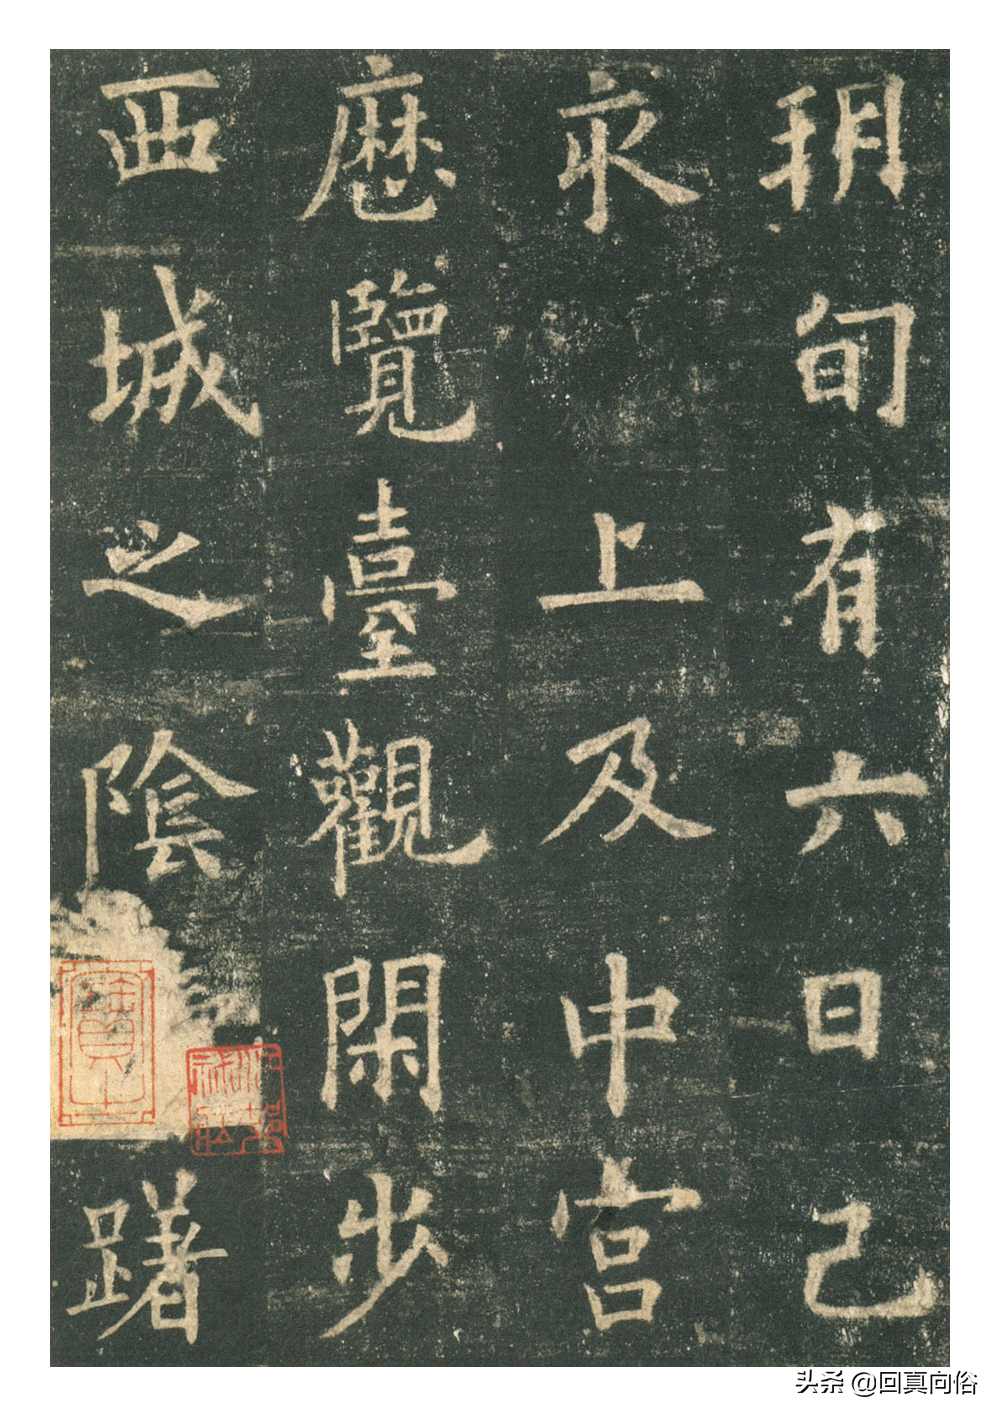 玥旬有六日己
亥上及中宫
歷覽臺觀閑步
西城之陰躇
头条 @回真向俗